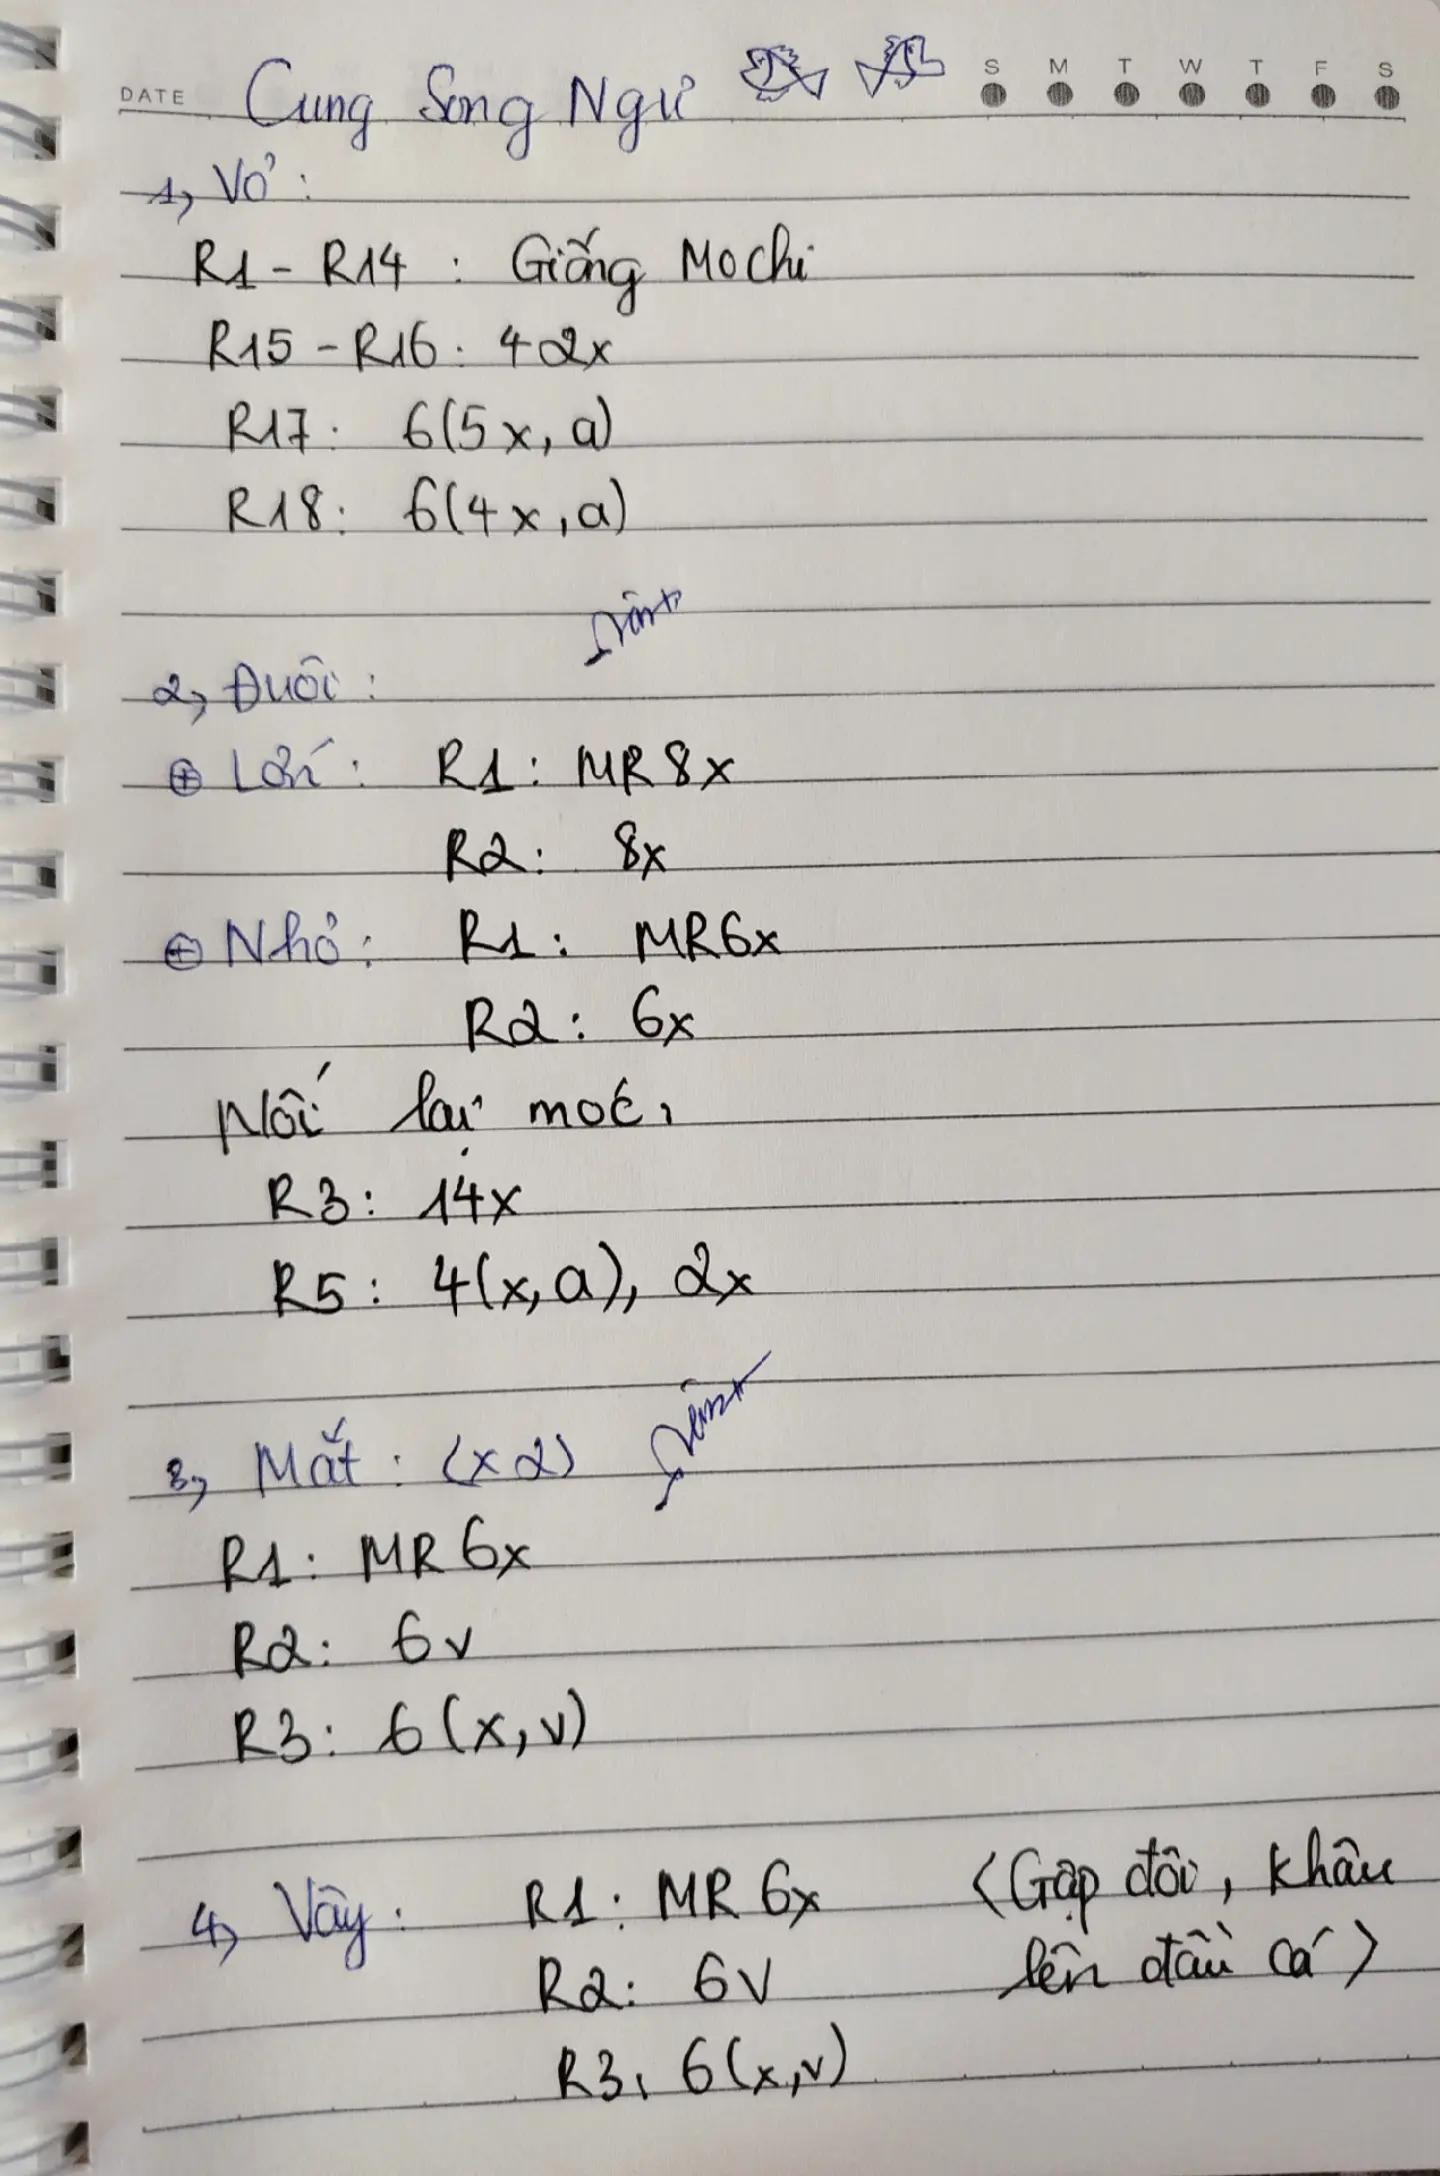 DATE Cung Song Ngư S M T W T F S
1, Vỏ :
R1 - R14 : Giống Mochi
R15 - R16 : 42x
R17 : 6(5x, a)
R18 : 6(4x, a)
2, Đuôi :
⊕ Lớn : R1 : MR 8x
R2 : 8x
⊕ Nhỏ : R1 : MR6x
R2 : 6x
Nối lại móc,
R3 : 14x
R5 : 4(x, a), 2x
3, Mắt : (x2)
R1 : MR 6x
R2 : 6v
R3 : 6(x, v)
4, Vây : R1 : MR 6x <Gập đôi, khâu
R2 : 6v lên đầu cá>
R3 : 6(x,v)